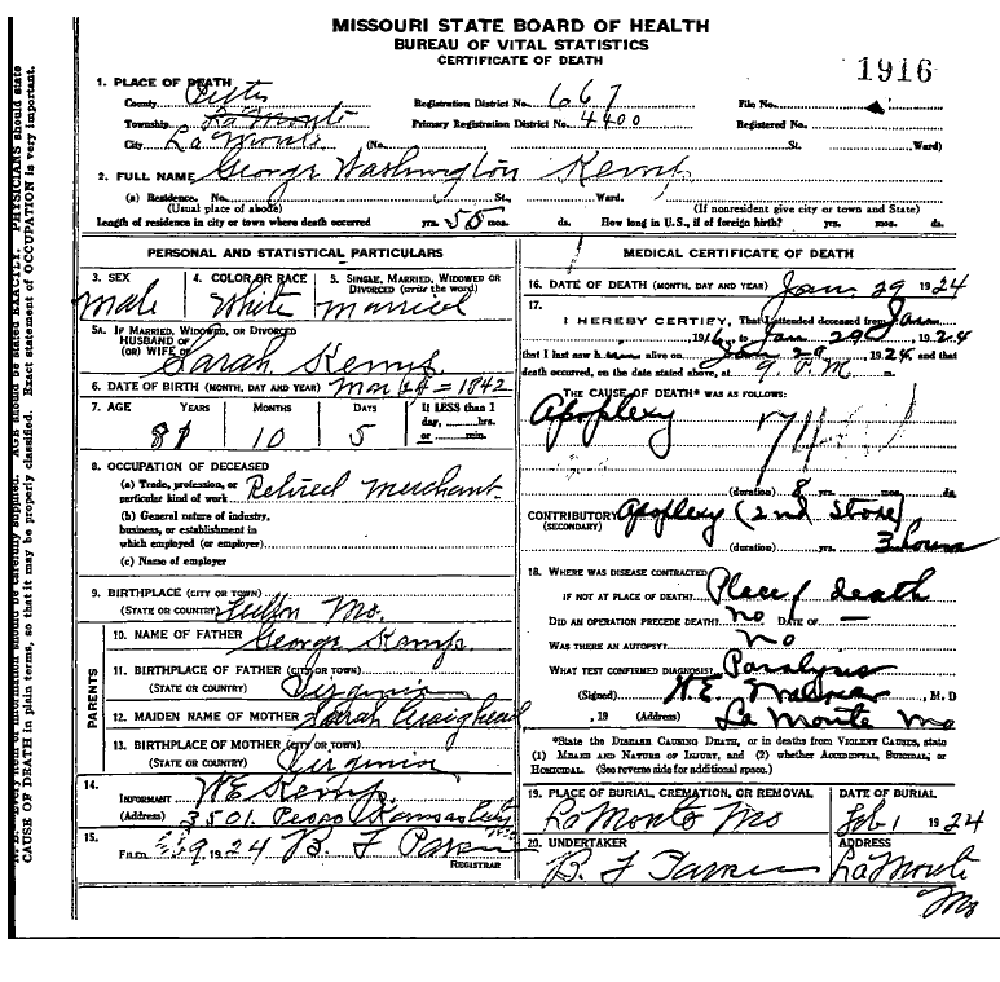 MISSOURI STATE BOARD OF HEALTH
BUREAU OF VITAL STATISTICS
CERTIFICATE OF DEATH
1916
1. PLACE OF DEATH
County Pettis Registration District No. 667 File No.
Township La Monte Primary Registration District No. 4400 Registered No.
City La Monte (No. St. Ward)
2. FULL NAME George Washington Kemp
(a) Residence. No. St., Ward.
(Usual place of abode) (If nonresident give city or town and State)
Length of residence in city or town where death occurred yrs. 55 mos. ds. How long in U.S., if of foreign birth? yrs. mos. ds.
PERSONAL AND STATISTICAL PARTICULARS
3. SEX 4. COLOR OR RACE 5. SINGLE, MARRIED, WIDOWED OR
DIVORCED (write the word)
Male White Married
5A. IF MARRIED, WIDOWED, OR DIVORCED
HUSBAND OF
(OR) WIFE OF Sarah Kemp
6. DATE OF BIRTH (MONTH, DAY AND YEAR) Mar = 1842
7. AGE YEARS MONTHS DAYS If LESS than 1
day, hrs.
81 10 5 or min.
8. OCCUPATION OF DECEASED
(a) Trade, profession, or
particular kind of work Retired Merchant
(b) General nature of industry,
business, or establishment in
which employed (or employer)
(c) Name of employer
9. BIRTHPLACE (CITY OR TOWN)
(STATE OR COUNTRY) Mo.
PARENTS
10. NAME OF FATHER George Kemp
11. BIRTHPLACE OF FATHER (CITY OR TOWN)
(STATE OR COUNTRY) Virginia
12. MAIDEN NAME OF MOTHER Sarah Craighead
13. BIRTHPLACE OF MOTHER (CITY OR TOWN)
(STATE OR COUNTRY) Virginia
14.
INFORMANT W E Kemp
(Address) 3501 Kansas City
15.
FILED 1924 B. F
REGISTRAR
MEDICAL CERTIFICATE OF DEATH
16. DATE OF DEATH (MONTH, DAY AND YEAR) Jan. 29 1924
17.
I HEREBY CERTIFY, That I attended deceased from Jan
, 1916, to Jan 29, 1924
that I last saw h alive on Jan 29, 1924 and that
death occurred, on the date stated above, at 9. P. M m.
THE CAUSE OF DEATH* WAS AS FOLLOWS:
Apoplexy
(duration) 8 yrs. mos. ds.
CONTRIBUTORY Apoplexy (2nd
(SECONDARY)
(duration) yrs. 3 hours
18. WHERE WAS DISEASE CONTRACTED
IF NOT AT PLACE OF DEATH? Place of death
DID AN OPERATION PRECEDE DEATH? no DATE OF —
WAS THERE AN AUTOPSY? no
WHAT TEST CONFIRMED DIAGNOSIS? Paralysis
(Signed) W. E. , M. D
, 19 (Address) La Monte Mo
*State the DISEASE CAUSING DEATH, or in deaths from VIOLENT CAUSES, state
(1) MEANS AND NATURE OF INJURY, and (2) whether ACCIDENTAL, SUICIDAL, or
HOMICIDAL. (See reverse side for additional space.)
19. PLACE OF BURIAL, CREMATION, OR REMOVAL DATE OF BURIAL
La Monte Mo Feb 1 1924
20. UNDERTAKER ADDRESS
B. F La Monte
Mo
N. B.—Every item of information should be carefully supplied. AGE should be stated EXACTLY. PHYSICIANS should state
CAUSE OF DEATH in plain terms, so that it may be properly classified. Exact statement of OCCUPATION is very important.